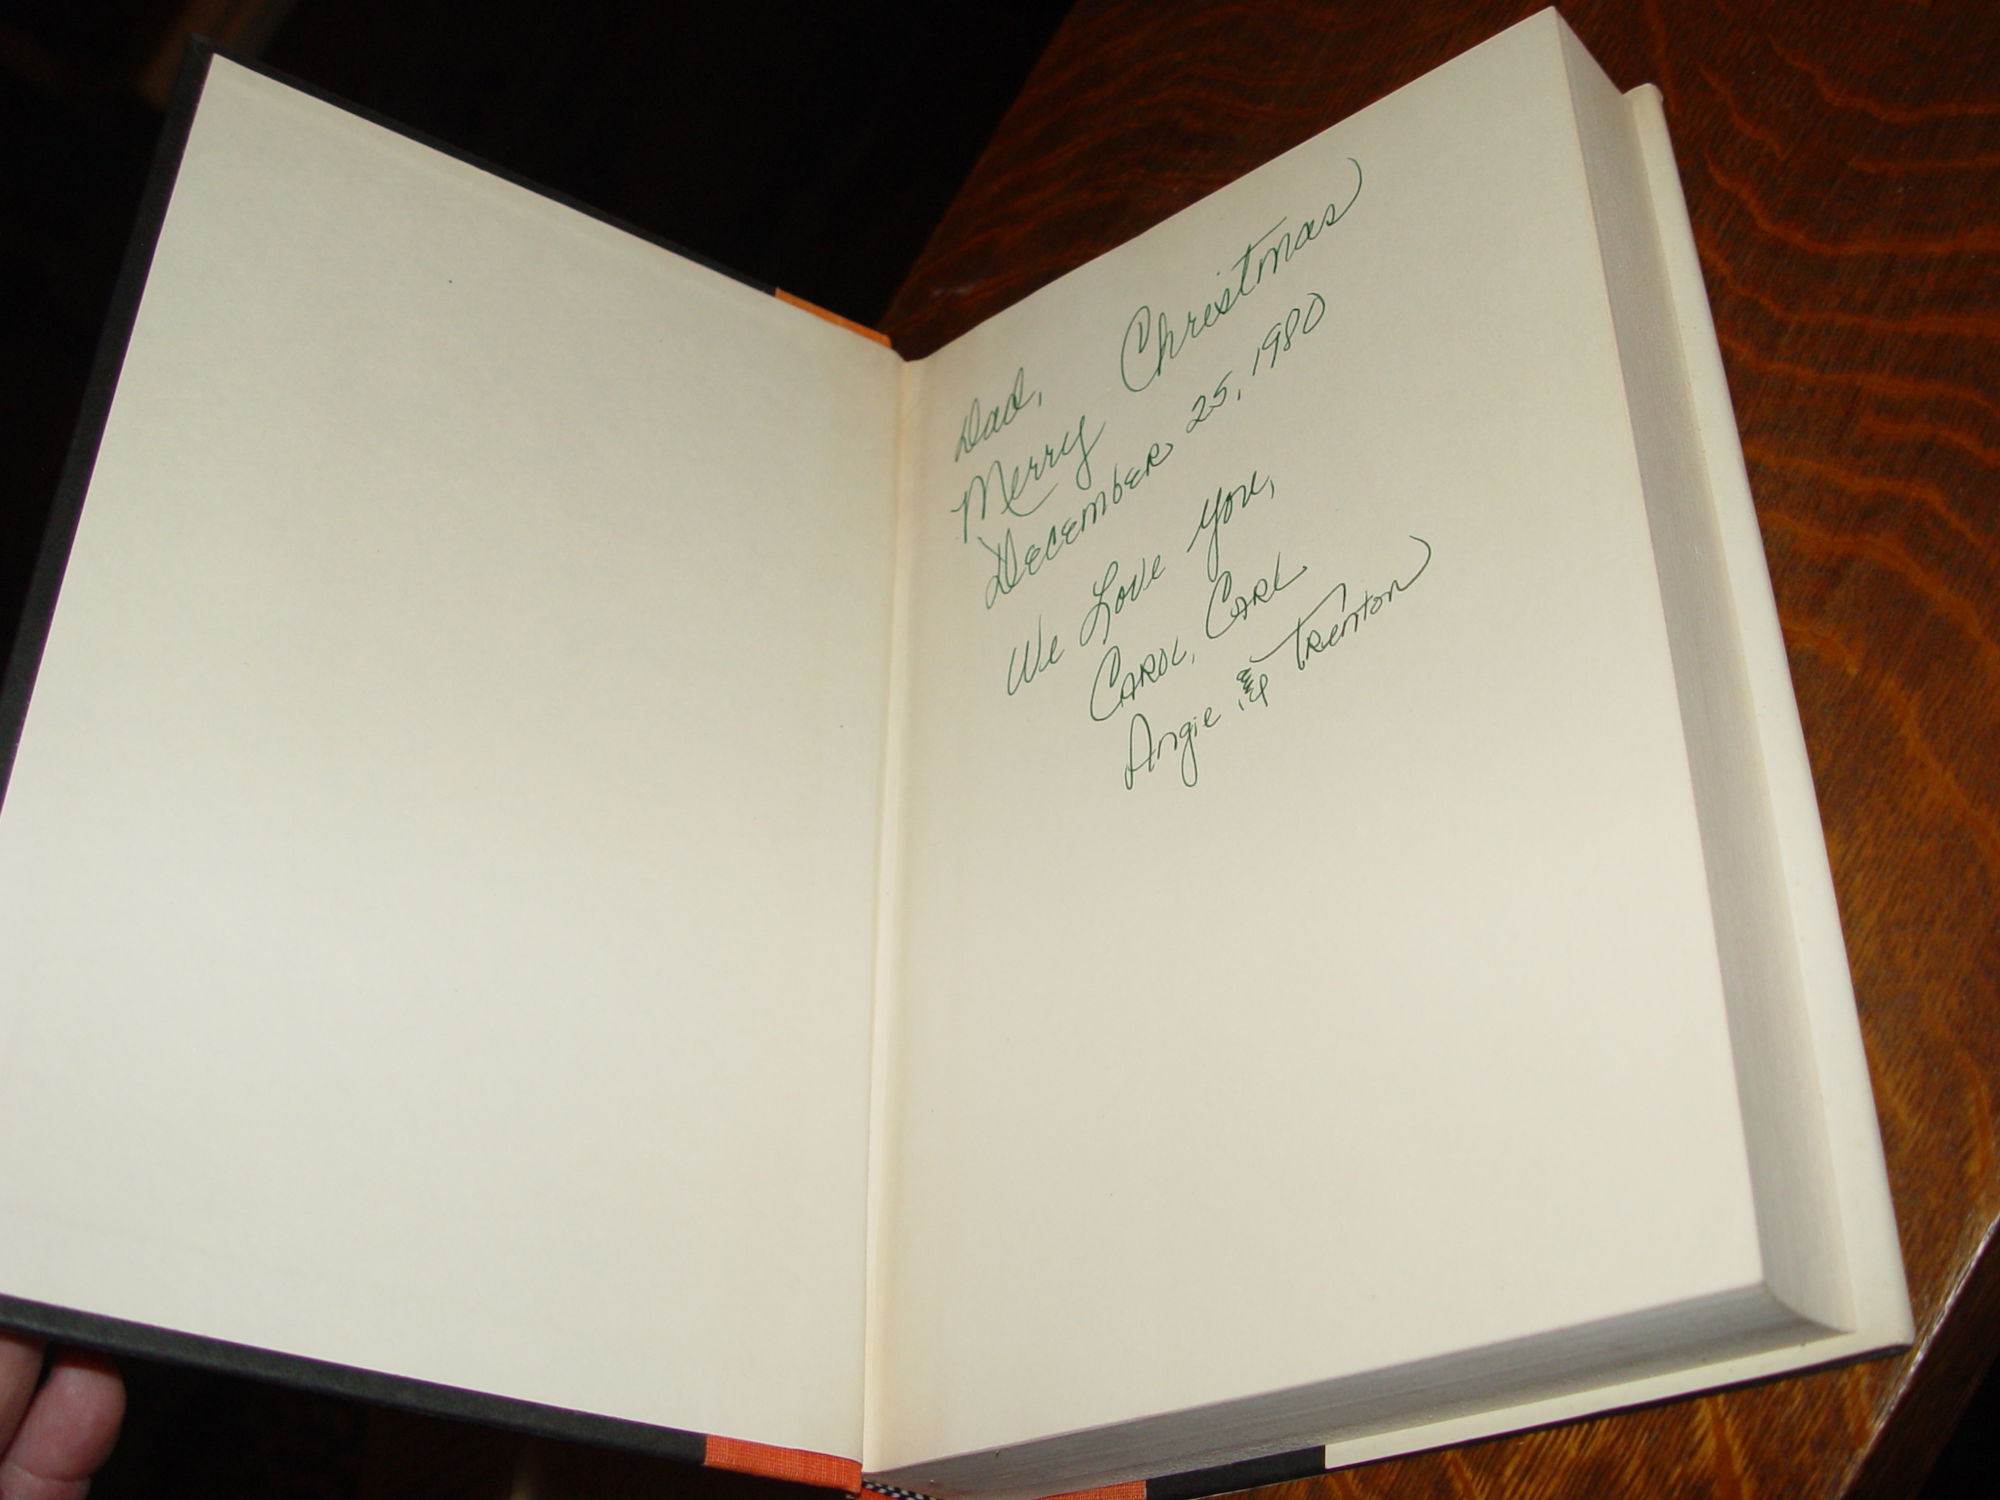 Dad,
Merry Christmas
December 25, 1980
We Love You,
Carol, Carl
Angie & Trenton